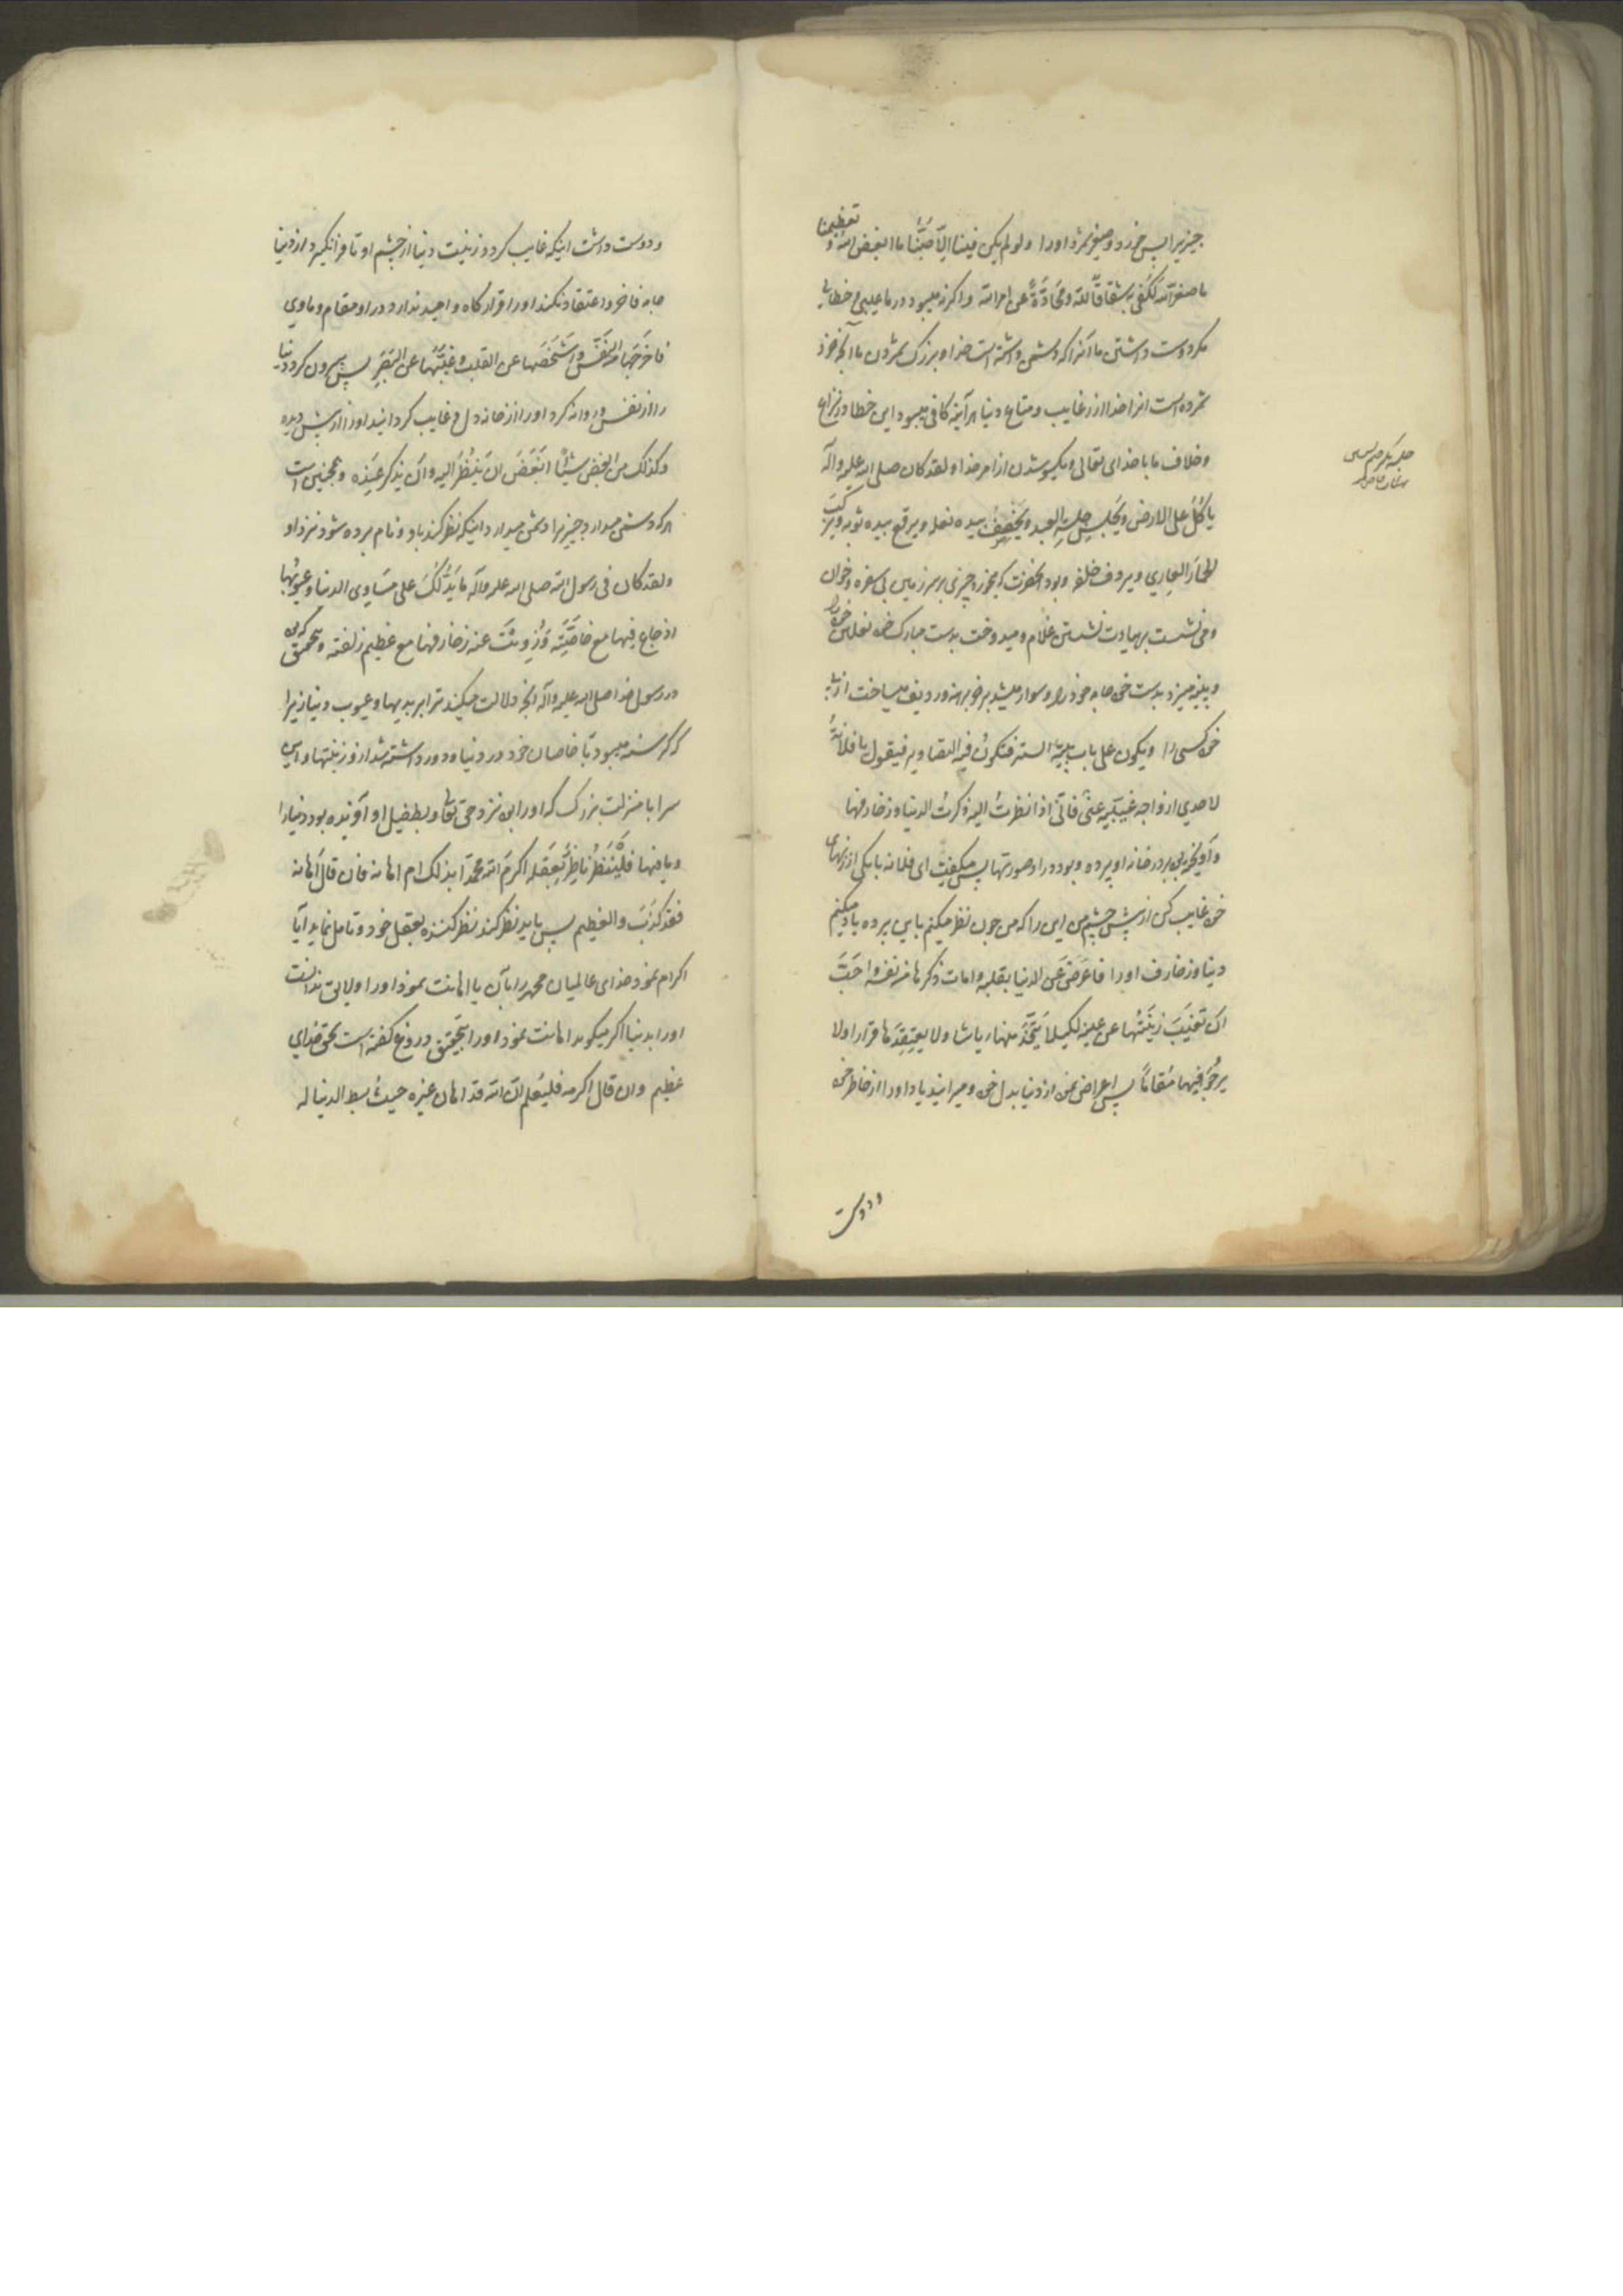 چیزیرا پس خورد و صغیر شمرد اورا ولو لم یکن فینا الّا حُبُّنا ما ابغض الله و تعظیمنا
ما صغر الله لکفی به شقاقًا لله و مُحادّةً عن امر الله و اکر نه میبود در ما عیبی و خطایی
مکر دوست داشتن ما آنرا که دشمن داشته است خدا و بزرک شمردن ما آنچه خورد
شمرده است انرا خدا از رغایب و متاع دنیا هر آینه کافی میبود این خطا در نزاع
و خلاف ما با خدای تعالی و یکسو شدن از امر خدا و لقد کان صلی الله علیه و آله
یاکُلُ علی الارض و یَجلِس جِلسة العبد و یَخصِفُ بیده نعله و یرقع بیده ثوبه و یرکَبُ
الحمار العاری و یردف خلفه و بود آنحضرت که میخورد چیزی بر سر زمین بی سفره و خوان
و می نشست بهیات نشستن غلام و میدوخت بدست مبارک خود نعلین خود را
و پینه میزد بدست خود جامه خود را و سوار میشد بر خر برهنه و ردیف میساخت از پی
خود کسی را و یکون علی باب بیته الستر فتکونُ فیه التصاویر فیقول یا فلانةُ
لاحدی ازواجه غیّبیه عنّی فانّی اذا نظرتُ الیه ذکرتُ الدنیا و زخارفها
و آویخته بود بر در خانه او پرده و بود در او صورتها پس میکفت ای فلانه با یکی از زنهای
خود غایب کن از پیش چشم من این را که من چون نظر میکنم باین پرده یاد میکنم
دنیا و زخارف او را فاعرَضَ عن الدنیا بقلبه و امات ذکرها من نفسه و احَبَّ
ان تغیبَ زینَتُها عن عینه لکیلا یَتّخذ منها ریاشا و لا یعتقِدَها قرارا و لا
یرجُوَ فیها مُقامًا پس اعراض نمود از دنیا بدل خود و میرانید یاد اورا از خاطر خود
و دوست
و دوست داشت اینکه غایب کردد زینت دنیا از چشم او تا فرانکیرد از دنیا
جامه فاخر و اعتقاد نکند اورا قرارکاه و امید ندارد در او مقام و ماوی
فاخرَجَها من النَفس و اَشخَصَها عن القلب و غَیَّبَها عن البَصَرِ پس بیرون کرد دنیا
را از نفس و روانه کرد اورا از خانه دل و غایب کردانید اورا از پیش دیده
و کذلک من ابغض شیئًا ابغَضَ ان یَنظُرَ الیه و ان یذکر عِندَه و همچنین است
هر که دشمن میدارد چیزیرا دشمن میدارد اینکه نظر کند باو و نام برده شود نزد او
و لقد کان فی رسول الله صلی الله علیه و آله ما یَدُلُّکَ علی مَساوی الدنیا و عیوبها
اذ جاع فیها مع خاصَّتِه و زُویَتْ عنه زخارفها مع عظیم زلفته و بتحقیق که بود
در رسول خدا صلی الله علیه و آله آنچه دلالت میکند ترا بر بدیها و عیوب دنیا زیرا
که کرسنه میبود با خاصان خود در دنیا و دور داشته شد از و زینتها و این
سرا با منزلت بزرک که اورا بود نزد حق تعالی و بطفیل او آفریده بود دنیا را
و ما فیها فلیَنظُر ناظِرٌ بِعَقله اکرمَ الله محمّدًا بذلک ام اهانه فان قال اَهانه
فقد کَذَبَ و العظیم پس باید نظر کند نظر کننده بعقل خود و تامل نماید آیا
اکرام نمود خدای عالمیان محمد را بآن یا اهانت نمود اورا و لایق ندانست
اورا بدنیا اکر میکوید اهانت نمود اورا بتحقیق دروغ کفته است بحق خدای
عظیم و ان قال اکرمه فلیَعلم انّ الله قد اهان غیره حیثُ بسط الدنیا له